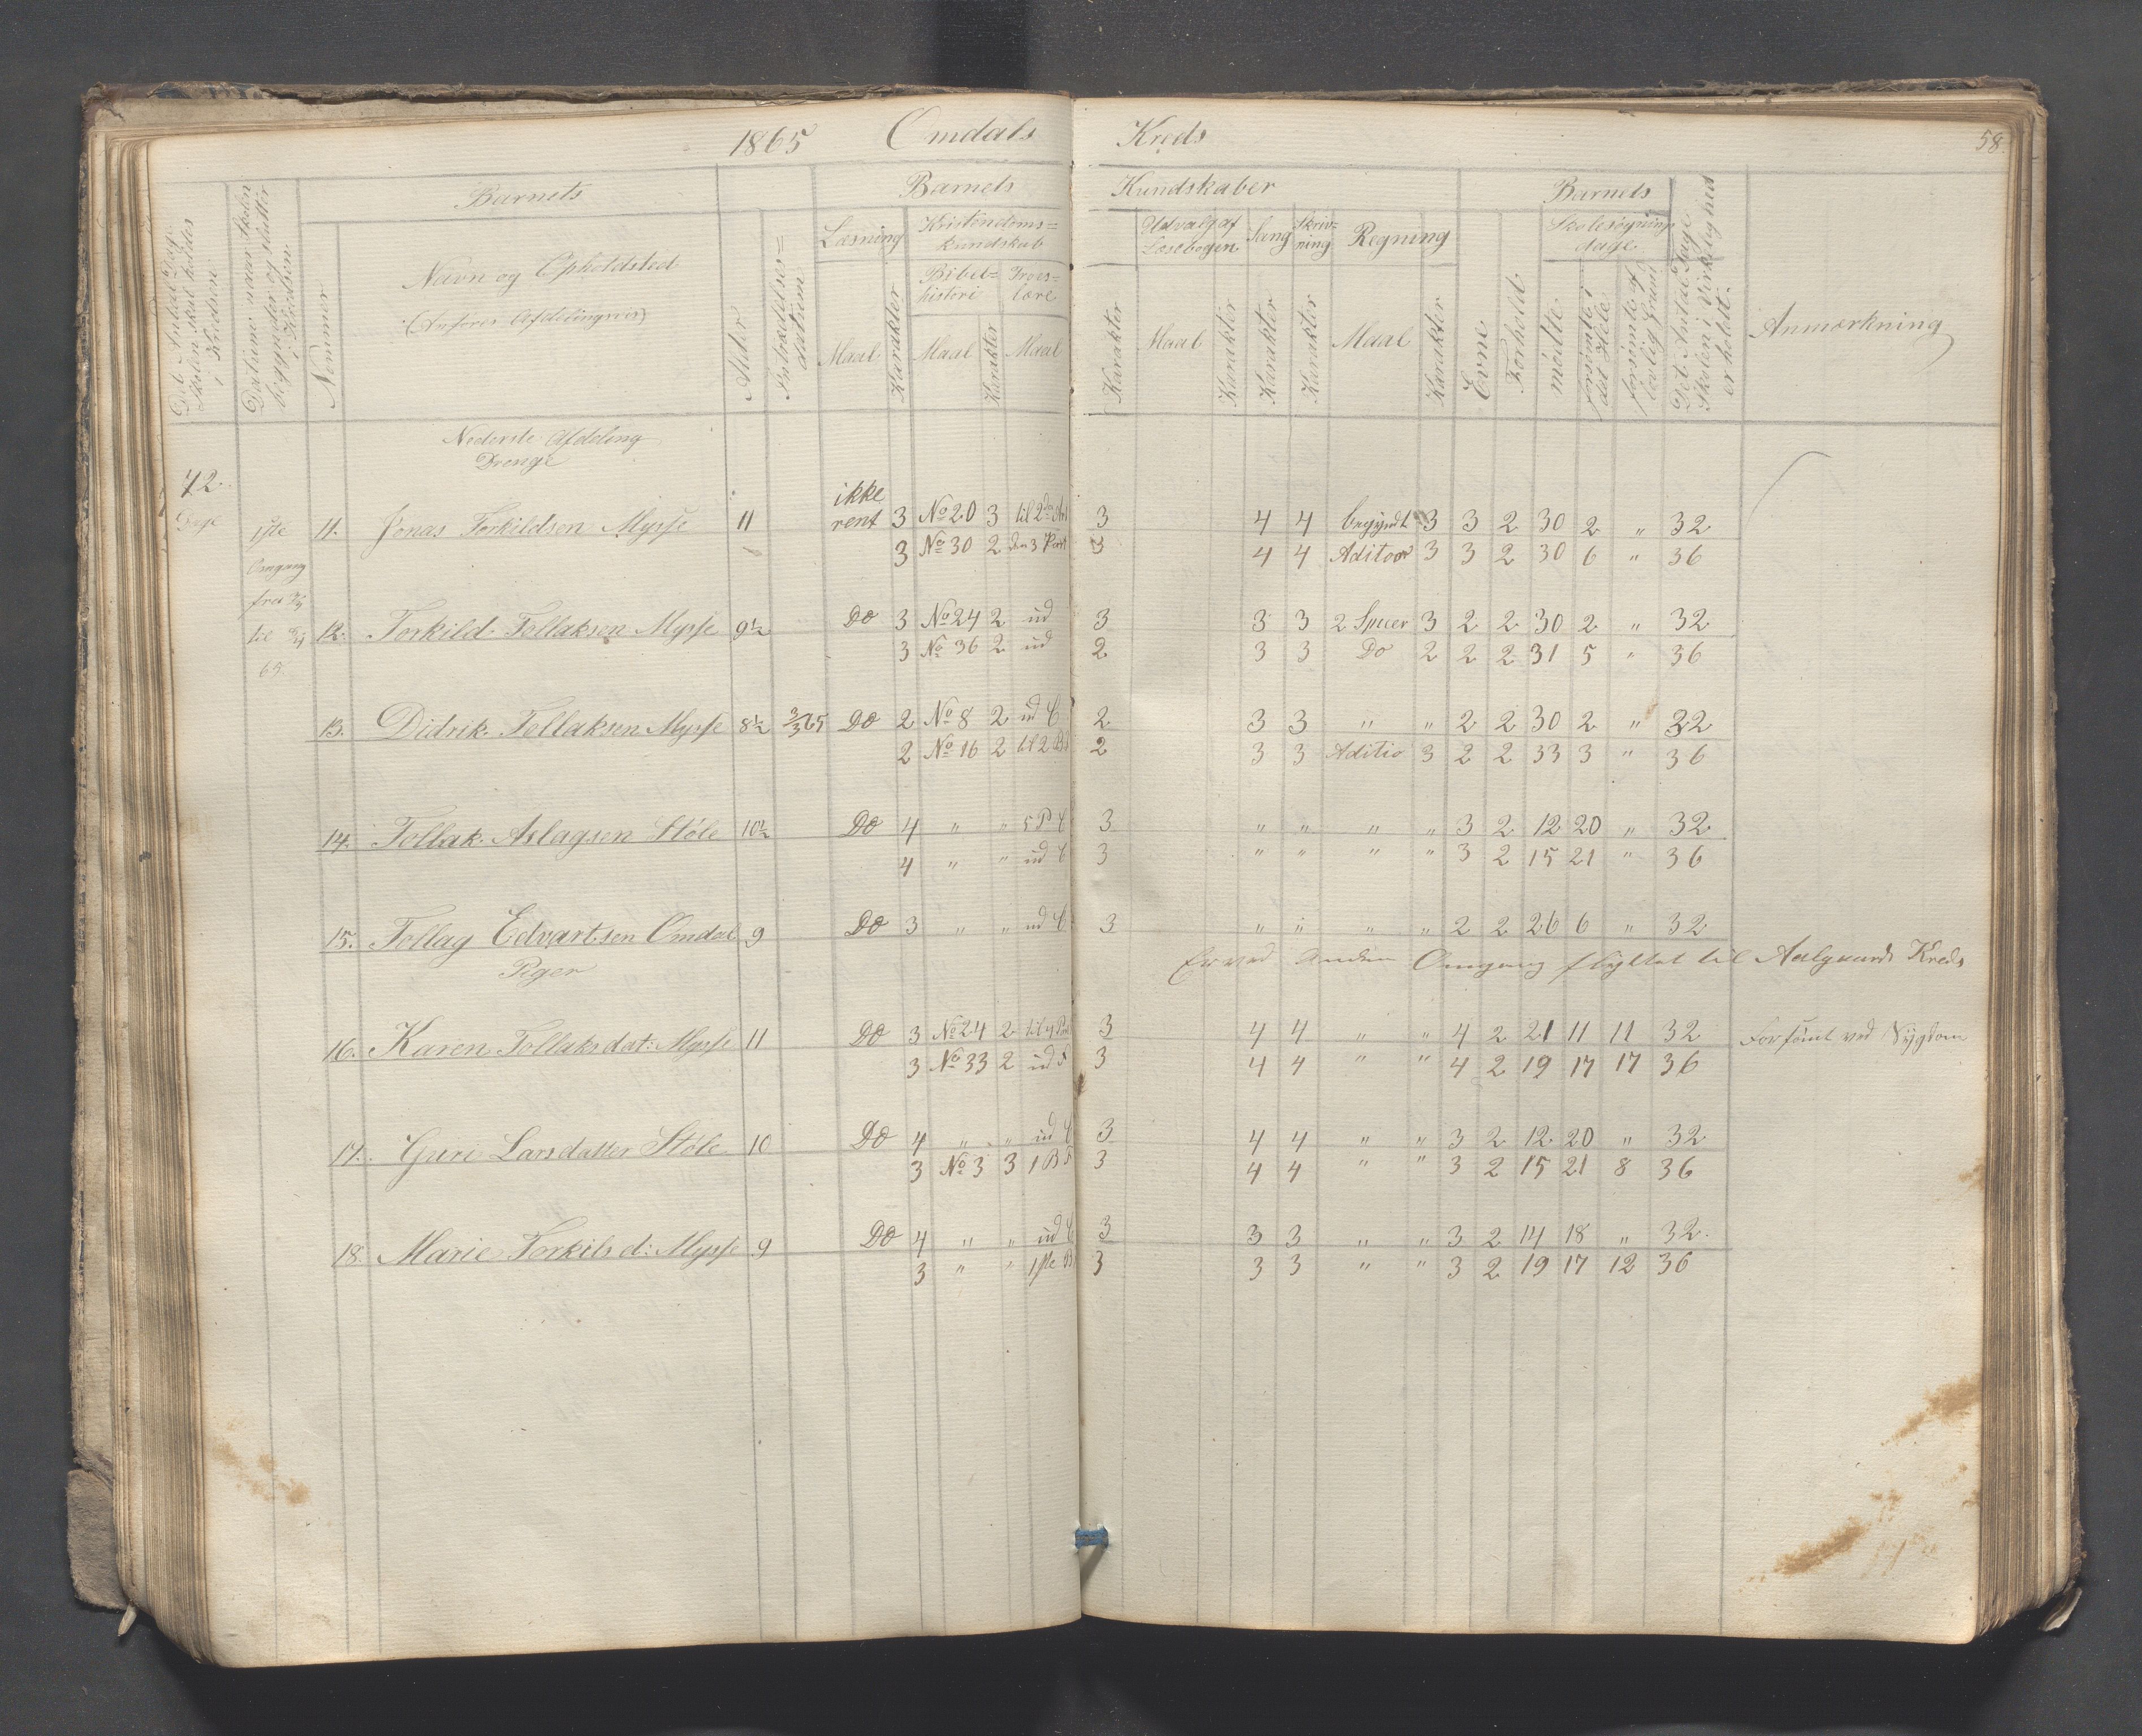 1865 Omdals Kreds 58.
Det Antal Dage Skolen skal holdes i Kredsen
Datum naar Skolen begynder og slutter i Kredsen.
Nommer
Barnets
Navn og Opholdsted
(Anføres Afdelingsvis)
Alder
Indtrædelses= datum
Barnets Kundskaber
Læsning
Maal
Karakter
Kristendoms= kundskab
Bibel= histori
Maal
Karakter
Troes= lære
Maal
Karakter
Udvalg af Læsebogen
Maal
Karakter
Sang
Karakter
Skriv= ning
Karakter
Regning
Maal
Karakter
Evne
Forhold
Barnets
Skolesøgnings dage
mødte
forsømte i det Hele
forsømte af lovlig Grund
Det Antal Dage Skolen i Virkelighed er holdt.
Anmærkning
Nederste Afdeling
Drenge
72
Dage
1ste
Omgang
fra
til
65
ikke
11. Jonas Torkildsen Mysse 11 rent 3 No 20 3 til 2den 3 4 4 begyndt 3 3 2 30 2 " 32
3 No 30 2 den 3 Part 3 4 4 Aditoor 3 3 2 30 6 " 36
12. Torkild Tollaksen Mysse 9½ Do 3 No 24 2 ud 3 3 3 2 Specer 3 2 2 30 2 " 32
3 No 36 2 ud 2 3 3 Do 2 2 2 31 5 " 36
13. Didrik Tollaksen Mysse 8½ 3/3 65 Do 2 No 8 2 ud 2 3 3 " " 2 2 30 2 " 32
2 No 16 2 til 2 2 3 3 Aditio 3 2 2 33 3 " 36
14. Tollak Aslagsen Støle 10½ Do 4 " " 5 P 3 " " " " 3 2 12 20 " 32
4 " " ud 3 " " " " 3 2 15 21 " 36
15. Tollag Edvartsen Omdal 9 Do 3 " " ud 3 " " " " 2 2 26 6 " 32
Er ved anden Omgang flyttet til Aalgaards Kreds
Piger
16. Karen Tollaksdat: Mysse 11 Do 3 No 24 2 til 4 3 4 4 " " 4 2 21 11 11 32 Forsømt ved Sygdom
3 No 33 2 ud 5 3 4 4 " " 4 2 19 17 17 36
17. Guri Larsdatter Støle 10 Do 4 " " ud 3 4 4 " " 3 2 12 20 " 32
3 No 3 3 1 B 3 4 4 " " 3 2 15 21 8 36
18. Marie Torkilsd: Mysse 9 Do 4 " " ud 3 3 3 " " 3 2 14 18 " 32.
3 " " 1ste B 3 3 3 " " 3 2 19 17 12 36